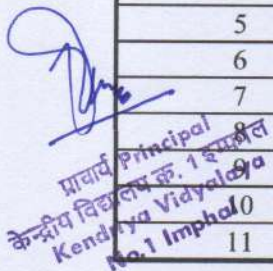 5
6
7
8
9
10
11
प्राचार्य Principal
केन्द्रीय विद्यालय क्र. 1 इम्फाल
Kendriya Vidyalaya
No.1 Imphal